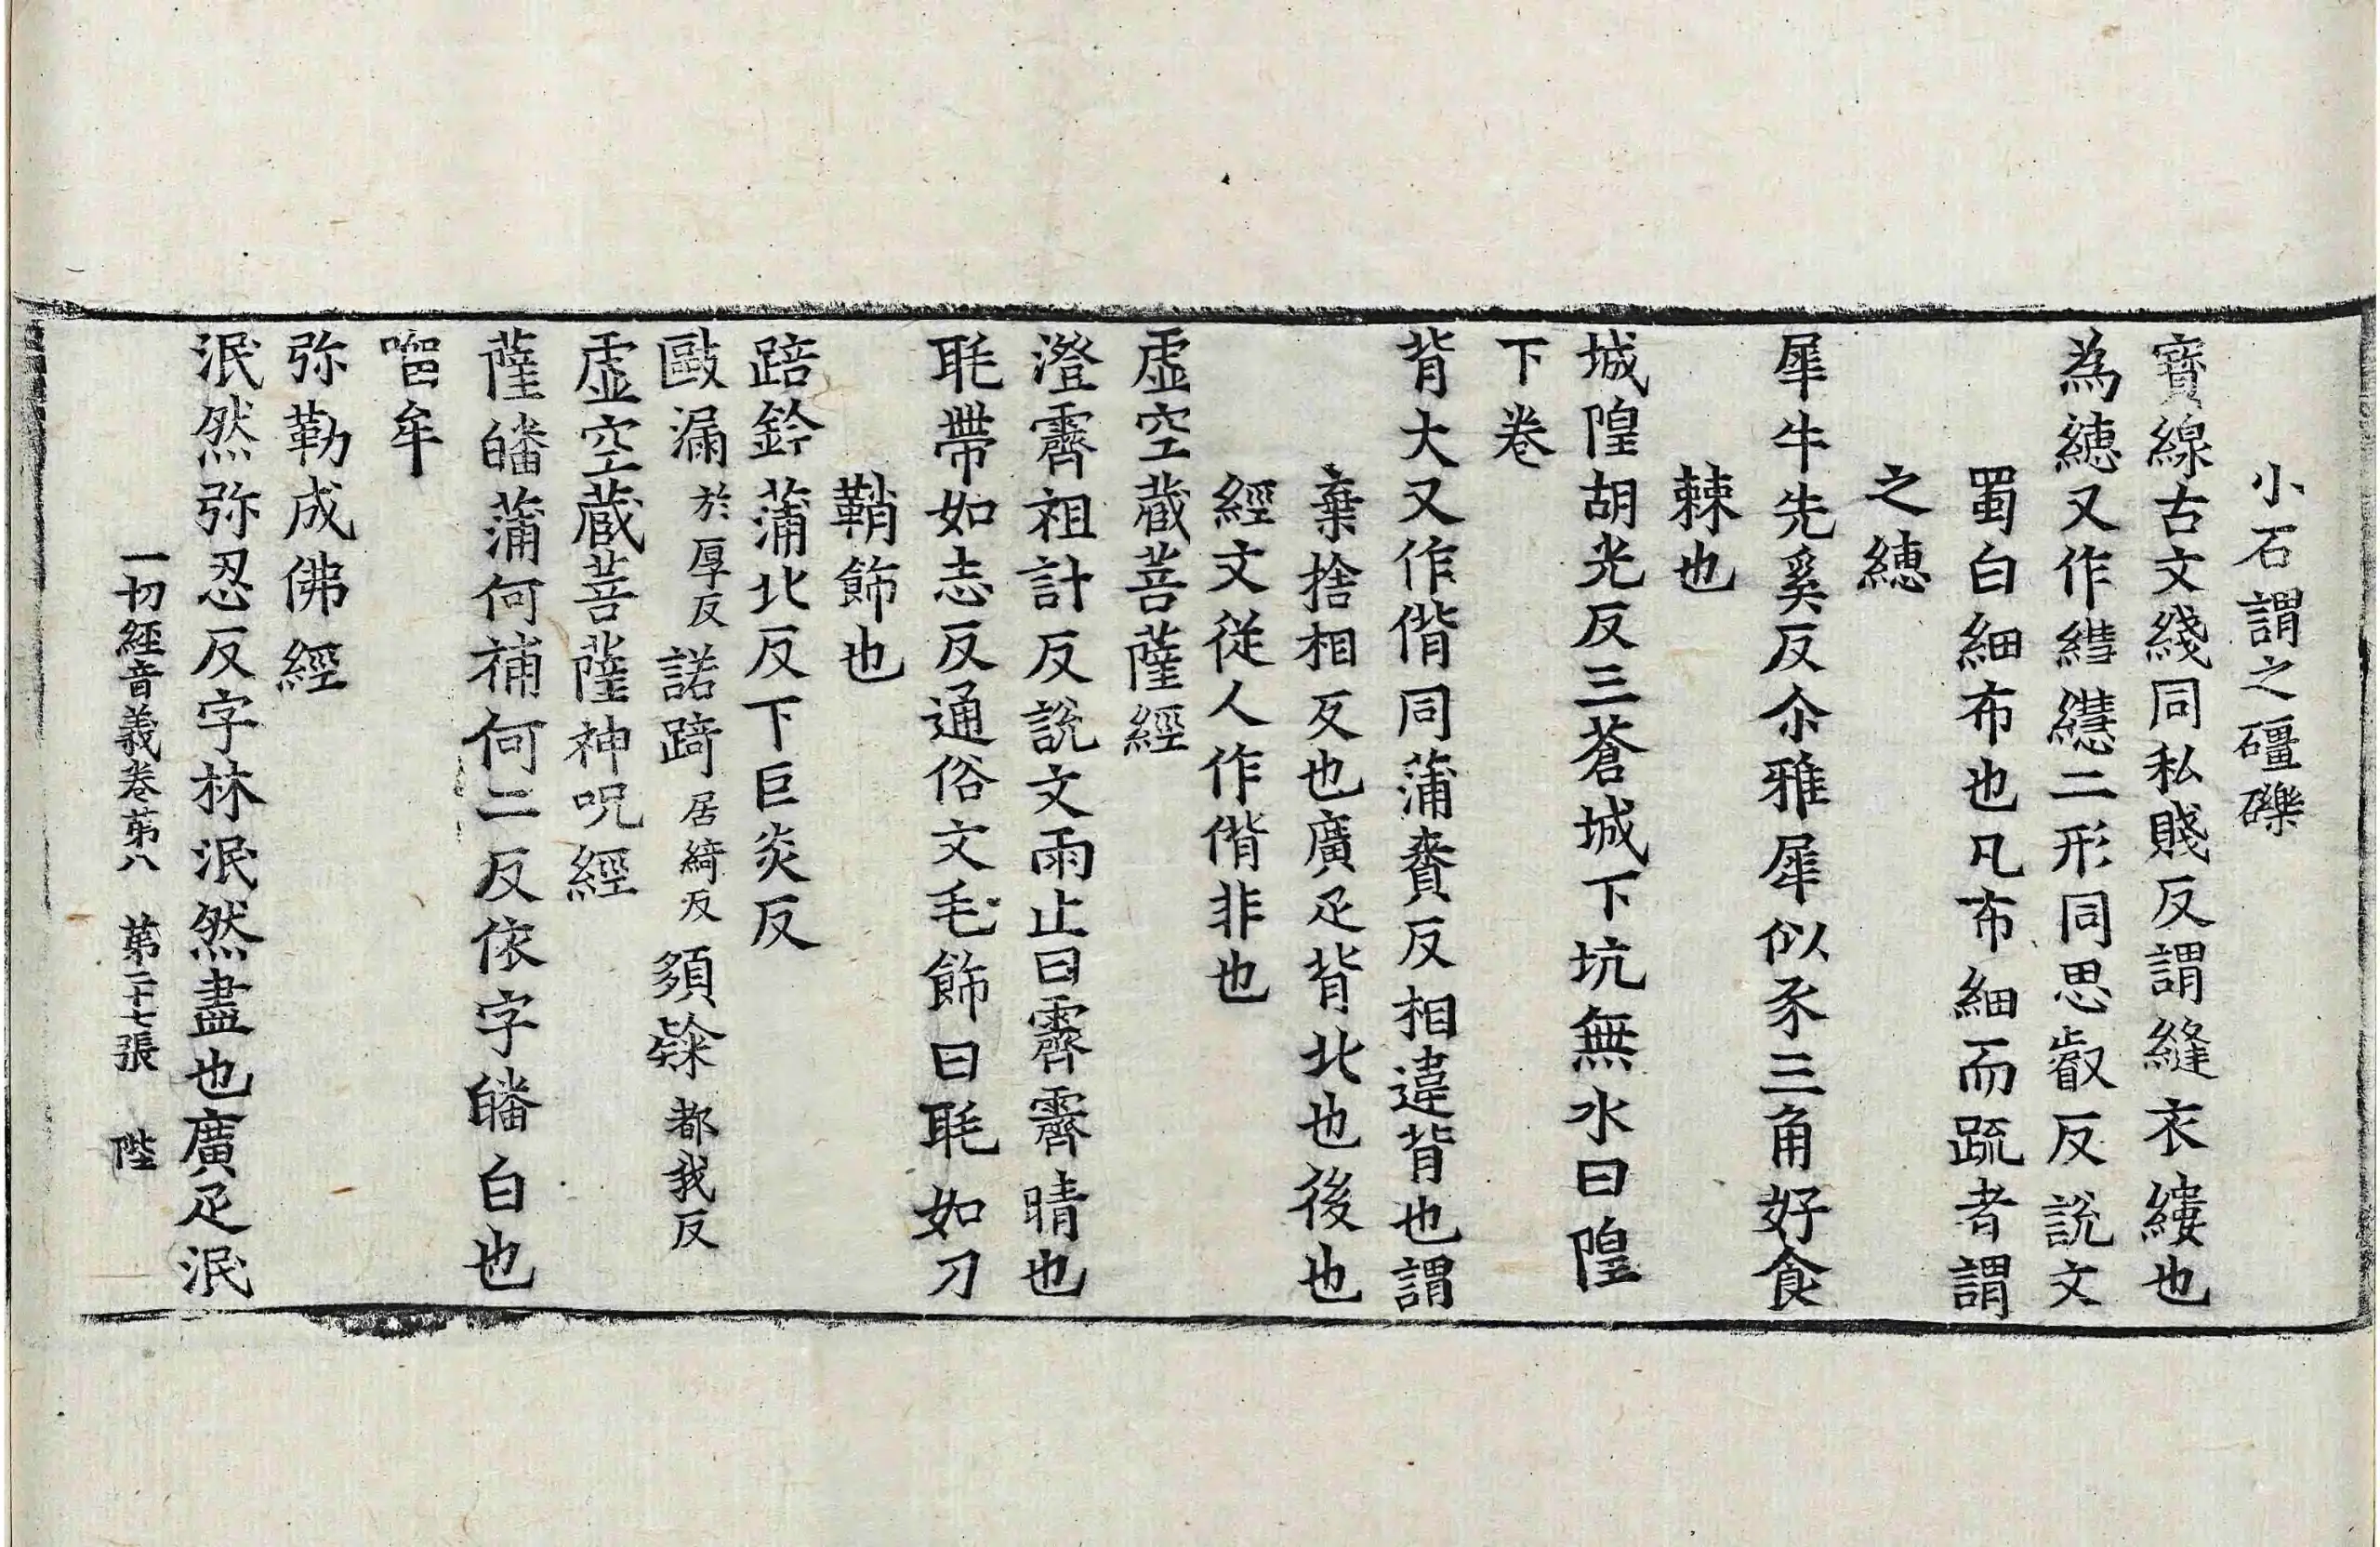 小石謂之礓礫
寶線古文綫同私賤反謂縫衣縷也
為繐又作𦄑繐二形同思叡反說文
蜀白細布也凡布細而䟽者謂
之繐
犀牛先奚反尒雅犀似豕三角好食
棘也
城隍胡光反三蒼城下坑無水曰隍
下卷
背大又作偝同蒲賚反相違背也謂
棄捨相反也廣疋背北也後也
經文從人作偝非也
虛空藏菩薩經
澄霽祖計反說文雨止曰霽霽晴也
毦帶如志反通俗文毛飾曰毦如刀
鞘飾也
踣鈐蒲北反下巨炎反
毆漏於厚反諾踦居綺反須都我反
虛空藏菩薩神呪經
薩皤蒲何補何二反依字皤白也
牟
弥勒成佛經
泯然弥忍反字林泯然盡也廣疋泯
一切經音義卷苐八 苐二十七張 陛